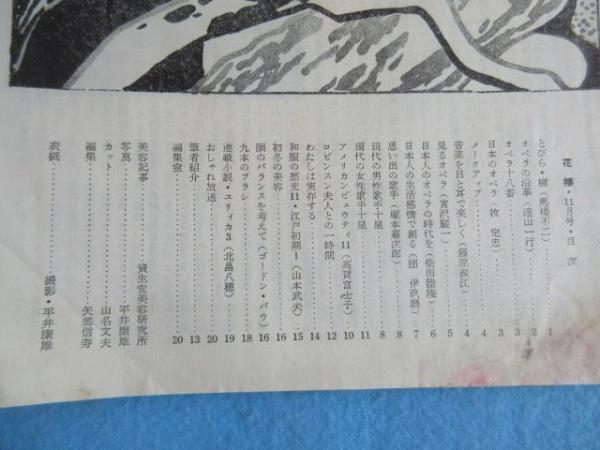 花椿・11月号・目次
とびら・樹(馬場不二)……1
オペラの沿革(遠山一行)……2
オペラ十八番……3
日本のオペラ(牧 定忠)……3
メークアップ……4
音楽を目と耳で楽しく(藤原義江)……4
見るオペラ(宮沢縦一)……5
日本人のオペラの時代を(柴田睦陸)……6
日本人の生活感情で創る(団 伊玖磨)……7
思い出の歌手(塚本嘉次郎)……8
現代の男性歌手十屋……8
現代の女性歌手十屋……11
アメリカンビュウティ11(高賀富士子)……10
ロビンスン夫人との一時間……12
わたしは実存する……14
和服の歴史11・江戸初期1(山本武夫)……15
初冬の美容……16
顔のバランスを考えて(ゴードン・バウ)……16
九本のブラシ……18
連載小説・ユリィカ3(北畠八穂)……19
おしゃれ放送……20
筆者紹介……13
編集室……20
美容記事……資生堂美容研究所
写真……平井康雄
カット……山名文夫
編集……矢部信寿
表紙……撮影・平井康雄